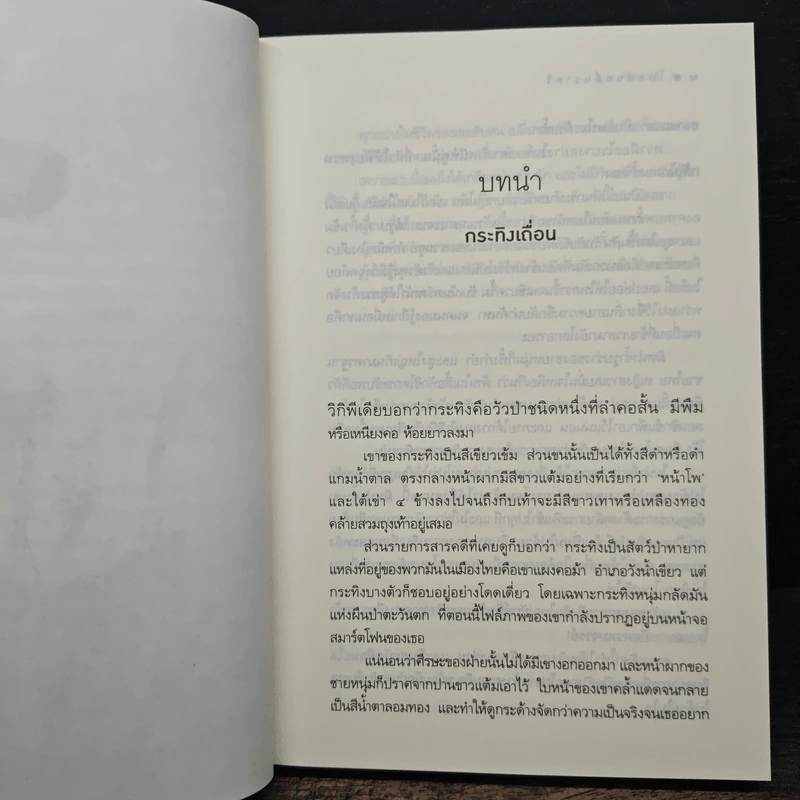 บทนำ
กระทิงเถื่อน
วิกิพีเดียบอกว่ากระทิงคือวัวป่าชนิดหนึ่งที่ลำคอสั้น มีพืม
หรือเหนียงคอ ห้อยยาวลงมา
เขาของกระทิงเป็นสีเขียวเข้ม ส่วนขนนั้นเป็นได้ทั้งสีดำหรือดำ
แกมน้ำตาล ตรงกลางหน้าผากมีสีขาวแต้มอย่างที่เรียกว่า ‘หน้าโพ’
และใต้เข่า ๔ ข้างลงไปจนถึงกีบเท้าจะมีสีขาวเทาหรือเหลืองทอง
คล้ายสวมถุงเท้าอยู่เสมอ
ส่วนรายการสารคดีที่เคยดูก็บอกว่า กระทิงเป็นสัตว์ป่าหายาก
แหล่งที่อยู่ของพวกมันในเมืองไทยคือเขาแผงคอม้า อำเภอวังน้ำเขียว แต่
กระทิงบางตัวก็ชอบอยู่อย่างโดดเดี่ยว โดยเฉพาะกระทิงหนุ่มกลัดมัน
แห่งผืนป่าตะวันตก ที่ตอนนี้ไฟล์ภาพของเขากำลังปรากฏอยู่บนหน้าจอ
สมาร์ตโฟนของเธอ
แน่นอนว่าศีรษะของฝ่ายนั้นไม่ได้มีเขางอกออกมา และหน้าผากของ
ชายหนุ่มก็ปราศจากปานขาวแต้มเอาไว้ ใบหน้าของเขาคล้ำแดดจนกลาย
เป็นสีน้ำตาลอมทอง และทำให้ดูกระด้างจัดกว่าความเป็นจริงจนเธออยาก